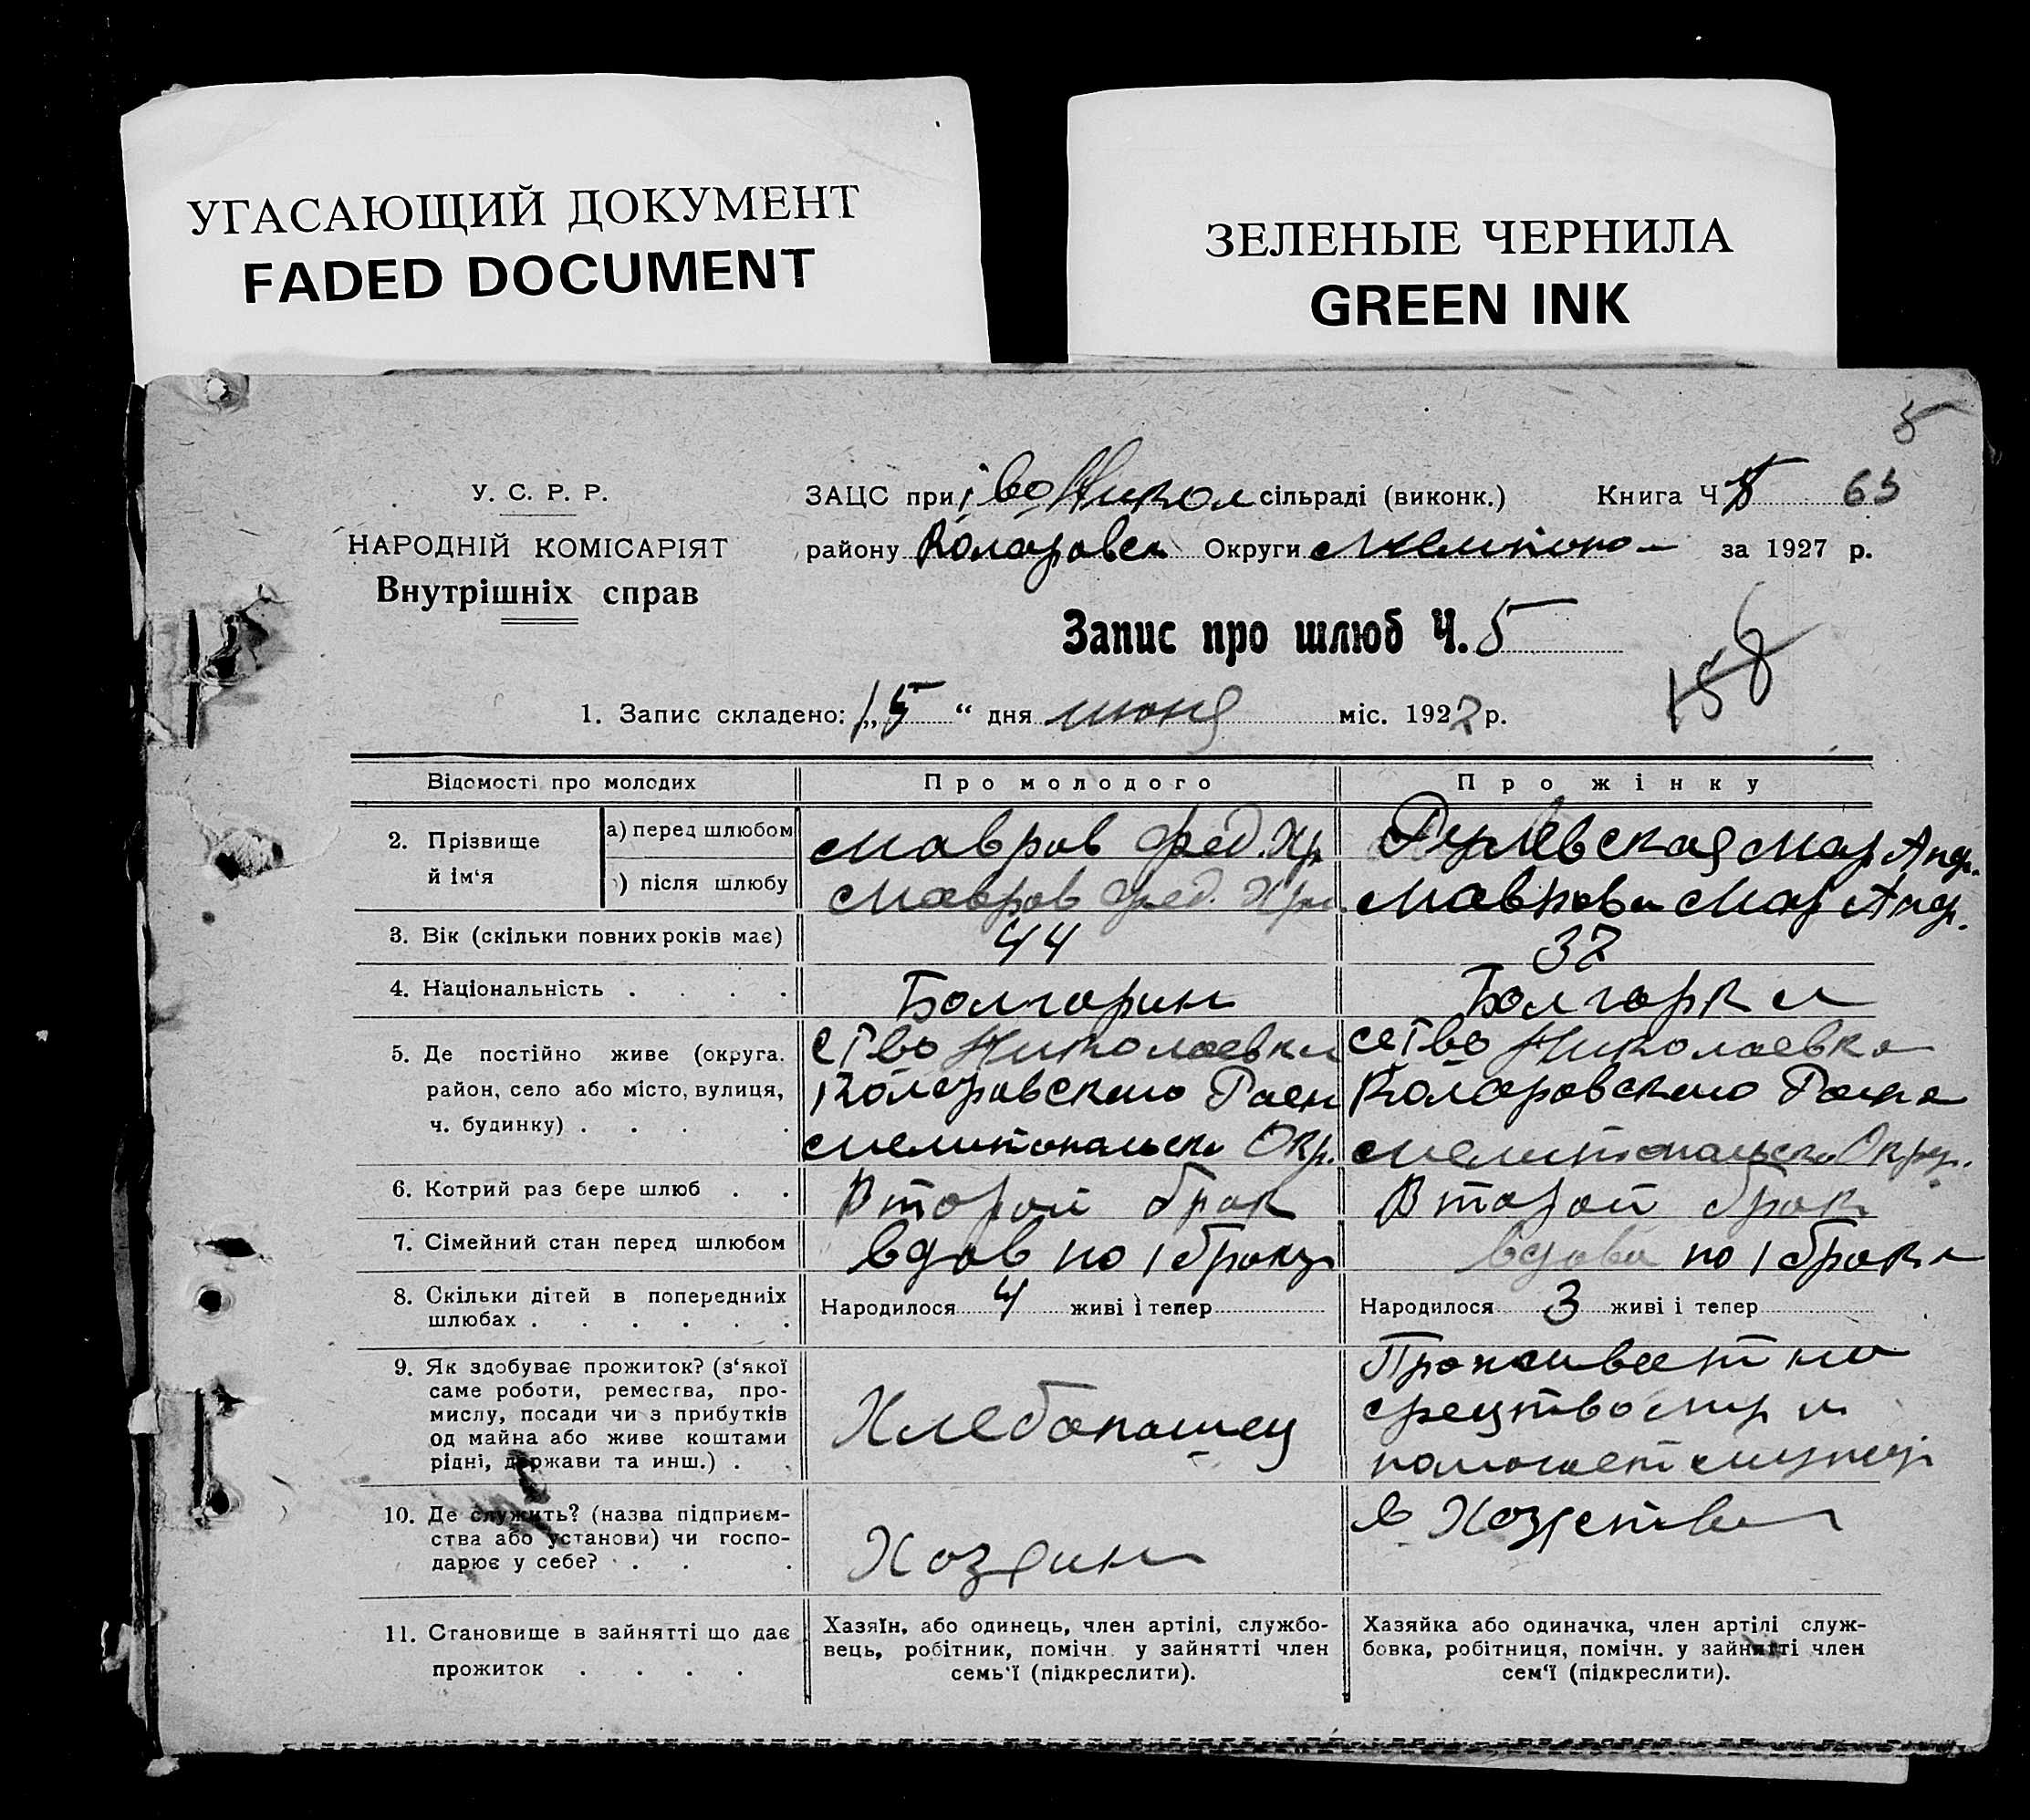 УГАСАЮЩИЙ ДОКУМЕНТ
FADED DOCUMENT
ЗЕЛЕНЫЕ ЧЕРНИЛА
GREEN INK
5
У. С. Р. Р.
НАРОДНІЙ КОМІСАРІЯТ
Внутрішніх справ
ЗАЦС при ІІво Никол сільраді (виконк.) Книга Ч 63
району Коларовск Округи Мелитопо за 1927 р.
Запис про шлюб Ч. 5
158
1. Запис складено: „15“ дня июня міс. 1927 р.
Відомості про молодих Про молодого Про жінку
2. Прізвище й ім‘я
а) перед шлюбом Мавров Фед. Хр Мар Андр.
) після шлюбу Мавров Фед. Хр Маврова Мар Андр.
3. Вік (скільки повних років має) 44 37
4. Національність . . . . Болгарин Болгарка
5. Де постійно живе (округа. район, село або місто, вулиця, ч. будинку) . . . .
ство Николаевка
Коларовского Раен
Мелитопольск Окр.
Николаевка
Коларовского Раена
Мелитопольск Окр.
6. Котрий раз бере шлюб . . Второй брак Второй брак
7. Сімейний стан перед шлюбом вдов по 1 браку вдова по 1 брака
8. Скільки дітей в попередниіх шлюбах . . . . . .
Народилося 4 живі і тепер
Народилося 3 живі і тепер
9. Як здобуває прожиток? (з‘якої
саме роботи, ремества, про-
мислу, посади чи з прибутків
од майна або живе коштами
рідні, держави та инш.) . .
Хлебопашец
Проживает на
помогает
10. Де служить? (назва підприєм-
ства або установи) чи госпо-
дарює у себе? . . .
Хозяин
в Хозяства
11. Становище в зайнятті що дає
прожиток . . . .
Хазяїн, або одинець, член артілі, службо-
вець, робітник, помічн. у зайнятті член
семь‘ї (підкреслити).
Хазяйка або одиначка, член артілі служ-
бовка, робітниця, помічн. у зайнятті член
сем‘ї (підкреслити).